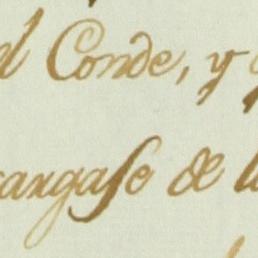 el Conde, y
cargase de l